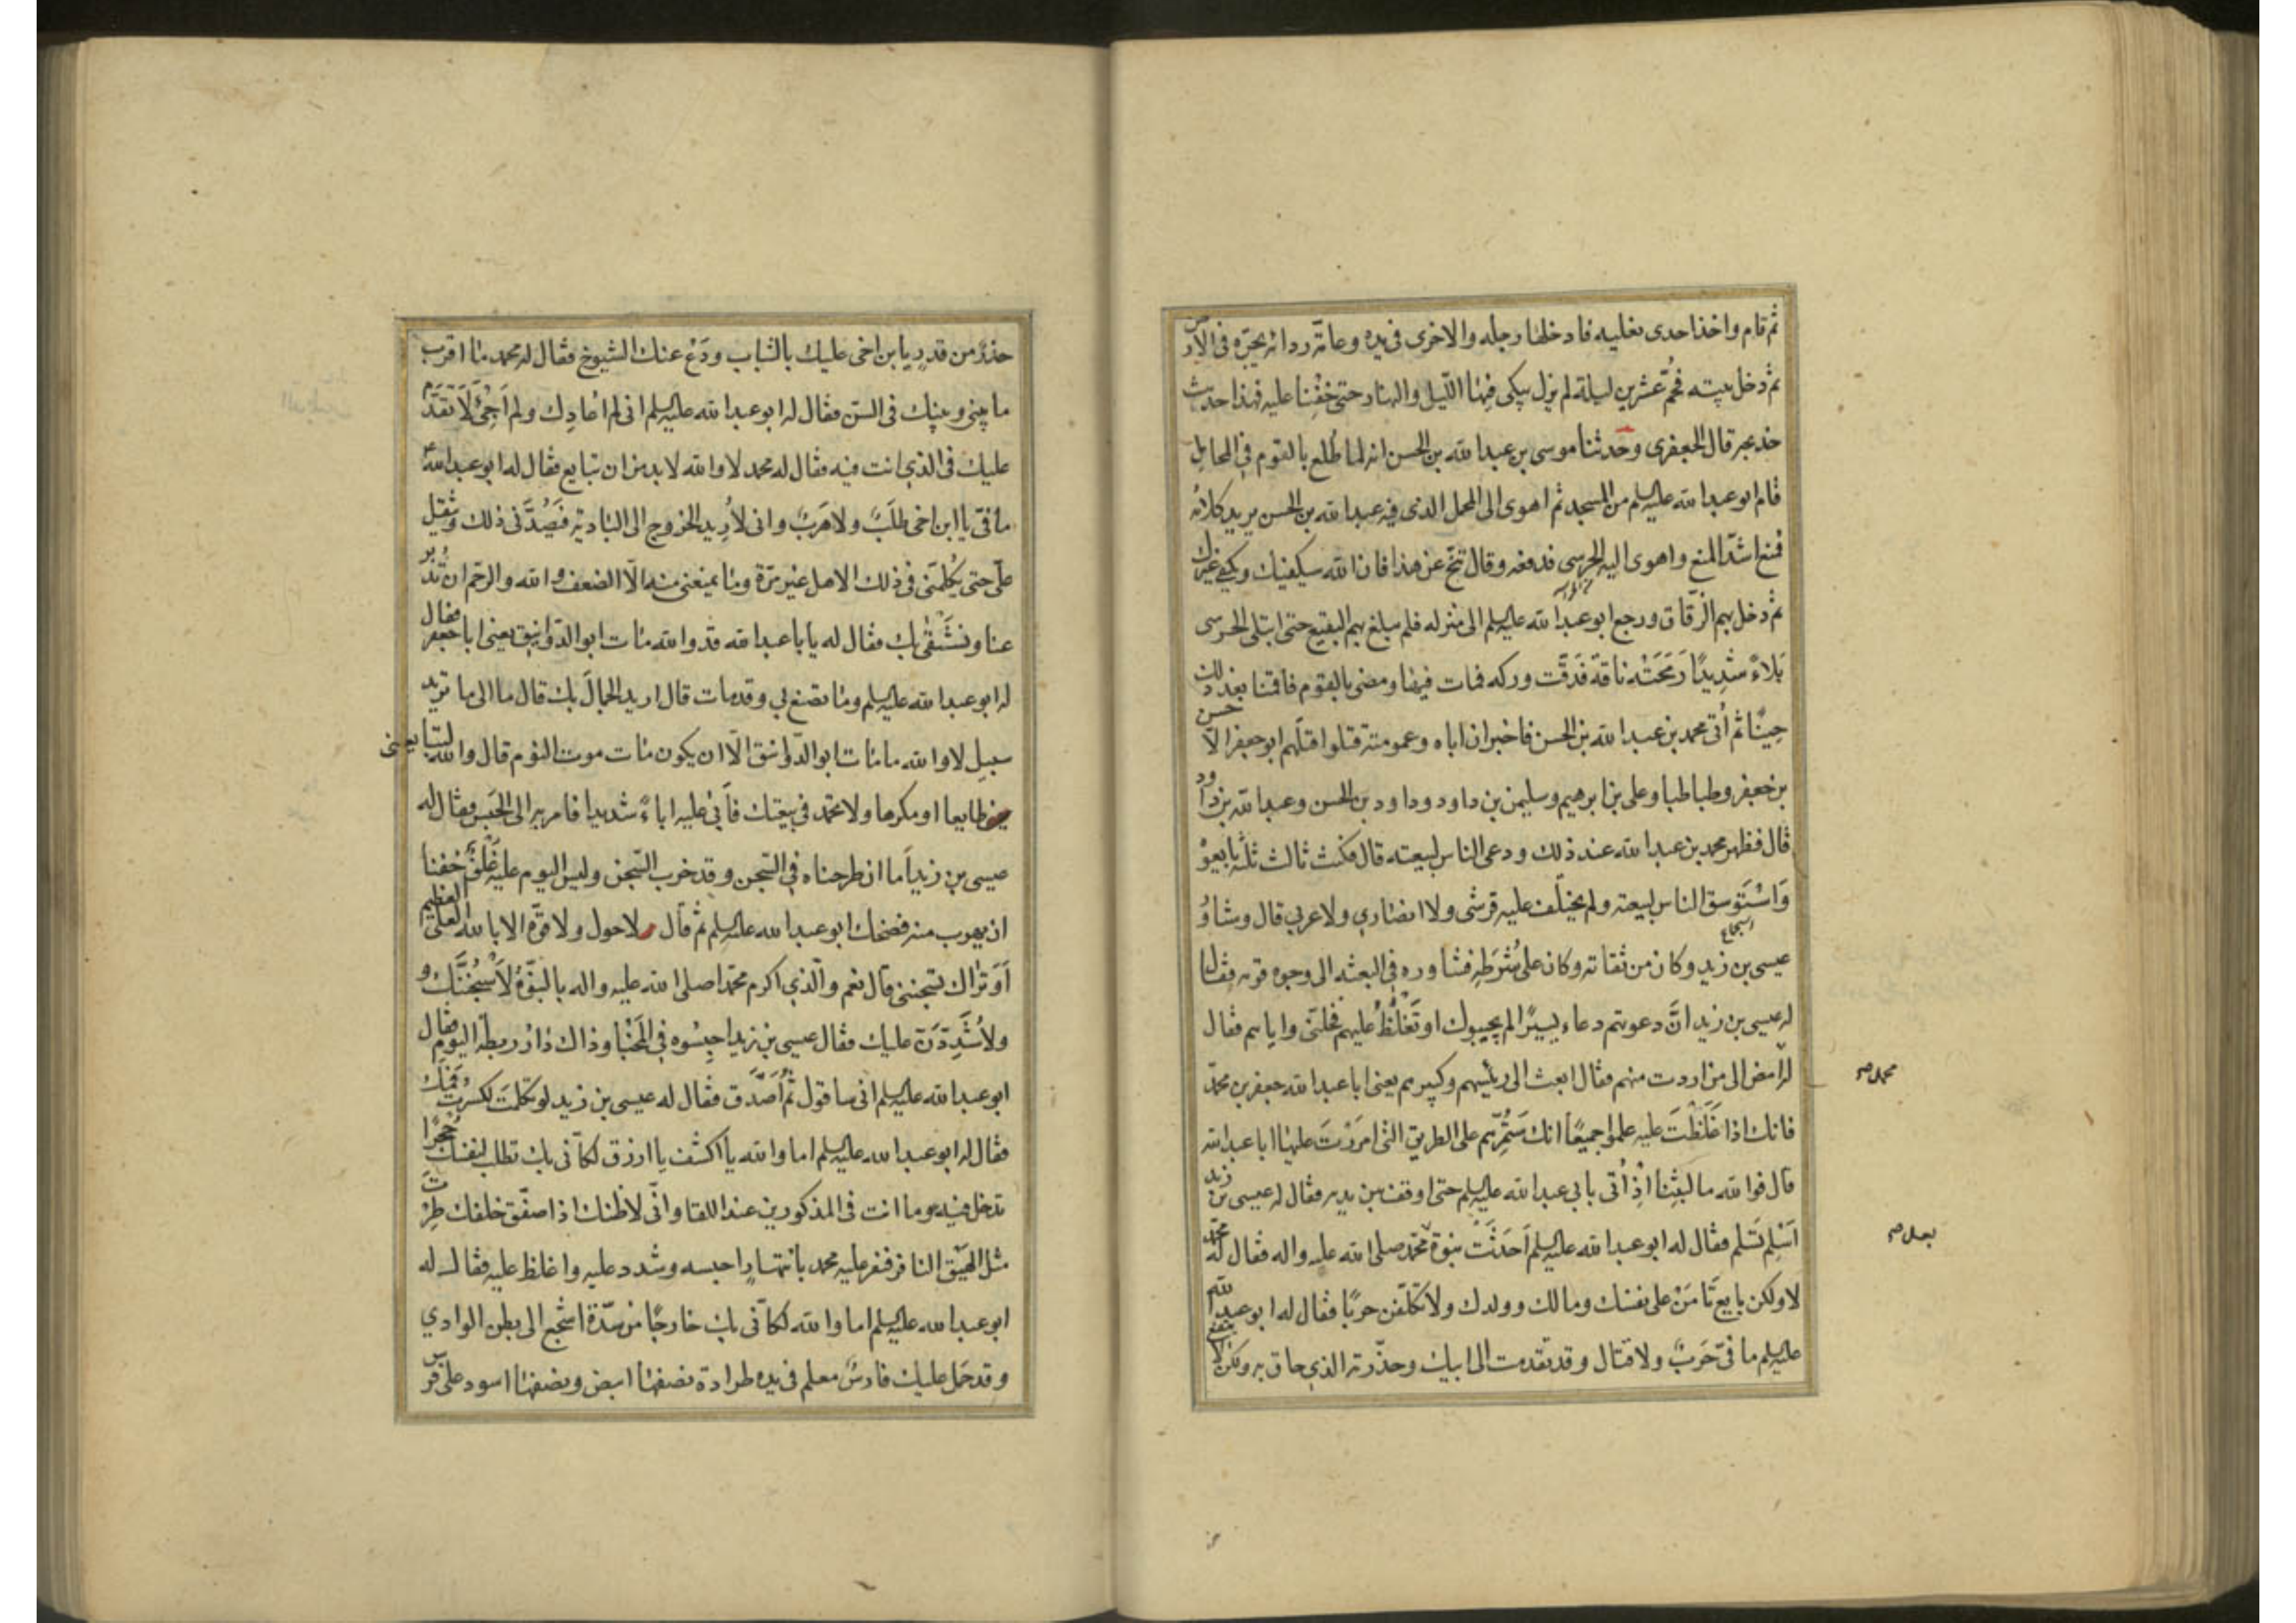 ثم قام واخذ احدى نعليه فادخلها رجله والاخرى فى يده وعامّة ردائه يجرّه فى الارض
ثم دخل بيته فحُمّ عشرين ليلة لم يزل يبكى فيها الليل والنهار حتى خفنا عليه فهذا حديث
خديجه قال الجعفرى وحدثنا موسى بن عبد الله بن الحسن انه لما طُلع بالقوم فى المحامل
قام ابو عبد الله عليه السلم من المسجد ثم اهوى الى المحمل الذى فيه عبد الله بن الحسن يريد كلامه
فمنع اشدّ المنع واهوى اليه الحرسى فدفعه وقال تنحّ عن هذا فان الله سيكفيك ويكفى غيرك
ثم دخل بهم الزّقاق ورجع ابو عبد الله عليه السلم الى منزله فلم يبلغ بهم البقيع حتى ابتلى الحرسى
بَلاءً شديدًا رَمَحَتْه ناقة فَدَقَّت وركه فمات فيها ومضى بالقوم فاقمنا بعد ذلك
حينًا ثم اُتى محمد بن عبد الله بن الحسن فاخبر ان اباه وعمومته قتلوا قتلهم ابو جعفر الاّ حسن
بن جعفر وطباطبا وعلى بن ابرهيم وسليمن بن داود وداود بن الحسن وعبد الله بن داود
قال فظهر محمد بن عبد الله عند ذلك ودعى الناس لبيعته قال فكنت ثالث ثلثة بايعوْ
وَاسْتَوسق الناس لبيعته ولم يختلف عليه قرشى ولا انصارى ولا عربى قال وشاوُ
عيسى بن زيد وكان من ثقاته وكان على شُرَطِه فشاوره فى البعثه الى وجوه قومه فقال
له عيسى بن زيد انّ دعوتهم دعاء يسيرًا لم يجيبوك او تَغْلُظُ عليهم فخلّنى واياهم فقال
له امض الى من اردت منهم فقال ابعث الى رئيسهم وكبيرهم يعنى ابا عبد الله جعفر بن محمد
محمد صح
فانك اذا غَلَظْتَ عليه علموا جميعًا انك سَتُمِرّهم على الطريق التى امررْتَ عليها ابا عبد الله
قال فوالله ما لبثنا اِذْ اُتى بابى عبد الله عليه السلم حتى اوقف بين يديه فقال له عيسى بن زيد
اَسْلِم تَسلم فقال له ابو عبد الله عليه السلم اَحَدَثَتْ نبوة بعد محمد صلى الله عليه واله فقال له محمد
لا ولكن بايع تَأمَنْ على نفسك ومالك وولدك ولا تكلّفن حربًا فقال له ابو عبد الله
عليه السلم ما فىّ حَربٌ ولا قتال وقد تقدمت الى ابيك وحذّرته الذى حاق به ولكن لا ينفع
حذرٌ من قدرٍ يا بن اخى عليك بالشباب ودَعْ عنك الشيوخ فقال له محمد ما اقرب
ما بينى وبينك فى السنّ فقال له ابو عبد الله عليه السلم انى لم اعادِك ولم اَجِئْ لاَتقدَّم
عليك فى الذى انت فيه فقال له محمد لا والله لا بد من ان تبايع فقال له ابو عبد الله ع
ما فىّ يا ابن اخى طلَبٌ ولا هَربٌ وانى لاُريد الخروج الى البادية فيَصُدّنى ذلك ويثقل
علىّ حتى يكلّمنى فى ذلك الاهل غير مرّة وما يمنعنى منه الاّ الضعف والله والرّحم ان تُدبر
عنا ونشْقى بك فقال له يا ابا عبد الله قد والله مات ابو الدّوانيق يعنى ابا جعفر فقال
له ابو عبد الله عليه السلم وما تصنع بى وقد مات قال اريد الجمال بك قال ما الى ما تريد
سبيل لا والله ما مات ابو الدّوانيق الاّ ان يكون مات موت النوم قال والله لتبايعنى
طايعا او مكرها ولا تحمد فى بيعتك فأبى عليه اباءً شديدا فامر به الى الحبس فقال له
عيسى بن زيد اَما ان طرحناه فى السّجن وقد خرب السّجن وليس اليوم عليه غَلَق خفنا
ان يهرب منه فضحك ابو عبد الله عليه السلم ثم قال لا حول ولا قوّه الا بالله العلى العظيم
اَوَتُراك تسجننى قال نعم والّذى اكرم محمّدا صلى الله عليه واله بالنبّوة لاَسْجُنَنَّك و
ولاُشَدِّدَنّ عليك فقال عيسى بن زيد احبسُوه فى المَخْبأ وذاك دار ريطة اليوم فقال
ابو عبد الله عليه السلم انى ساقول ثم اُصَدَّق فقال له عيسى بن زيد لو تكلّمتَ لكسرْت فمك
فقال له ابو عبد الله عليه السلم اما والله يا اكشف يا ازرق لكأنّى بك تطلب لنفسك جُحرًا
تدخل فيه وما انت فى المذكورين عند اللقا وانّى لاظنك اذا صفّق خلفك طِرْتَ
مثل الهَيْق النافر فنفر عليه محمد بانتهار احبسه وشدد عليه واغلظ عليه فقال له
ابو عبد الله عليه السلم اما والله لكأنّى بك خارجًا من سدّة اشجع الى بطن الوادي
وقد حَمل عليك فارسٌ معلم فى يده طرادة نصفها ابيض ونصفها اسود على فرس